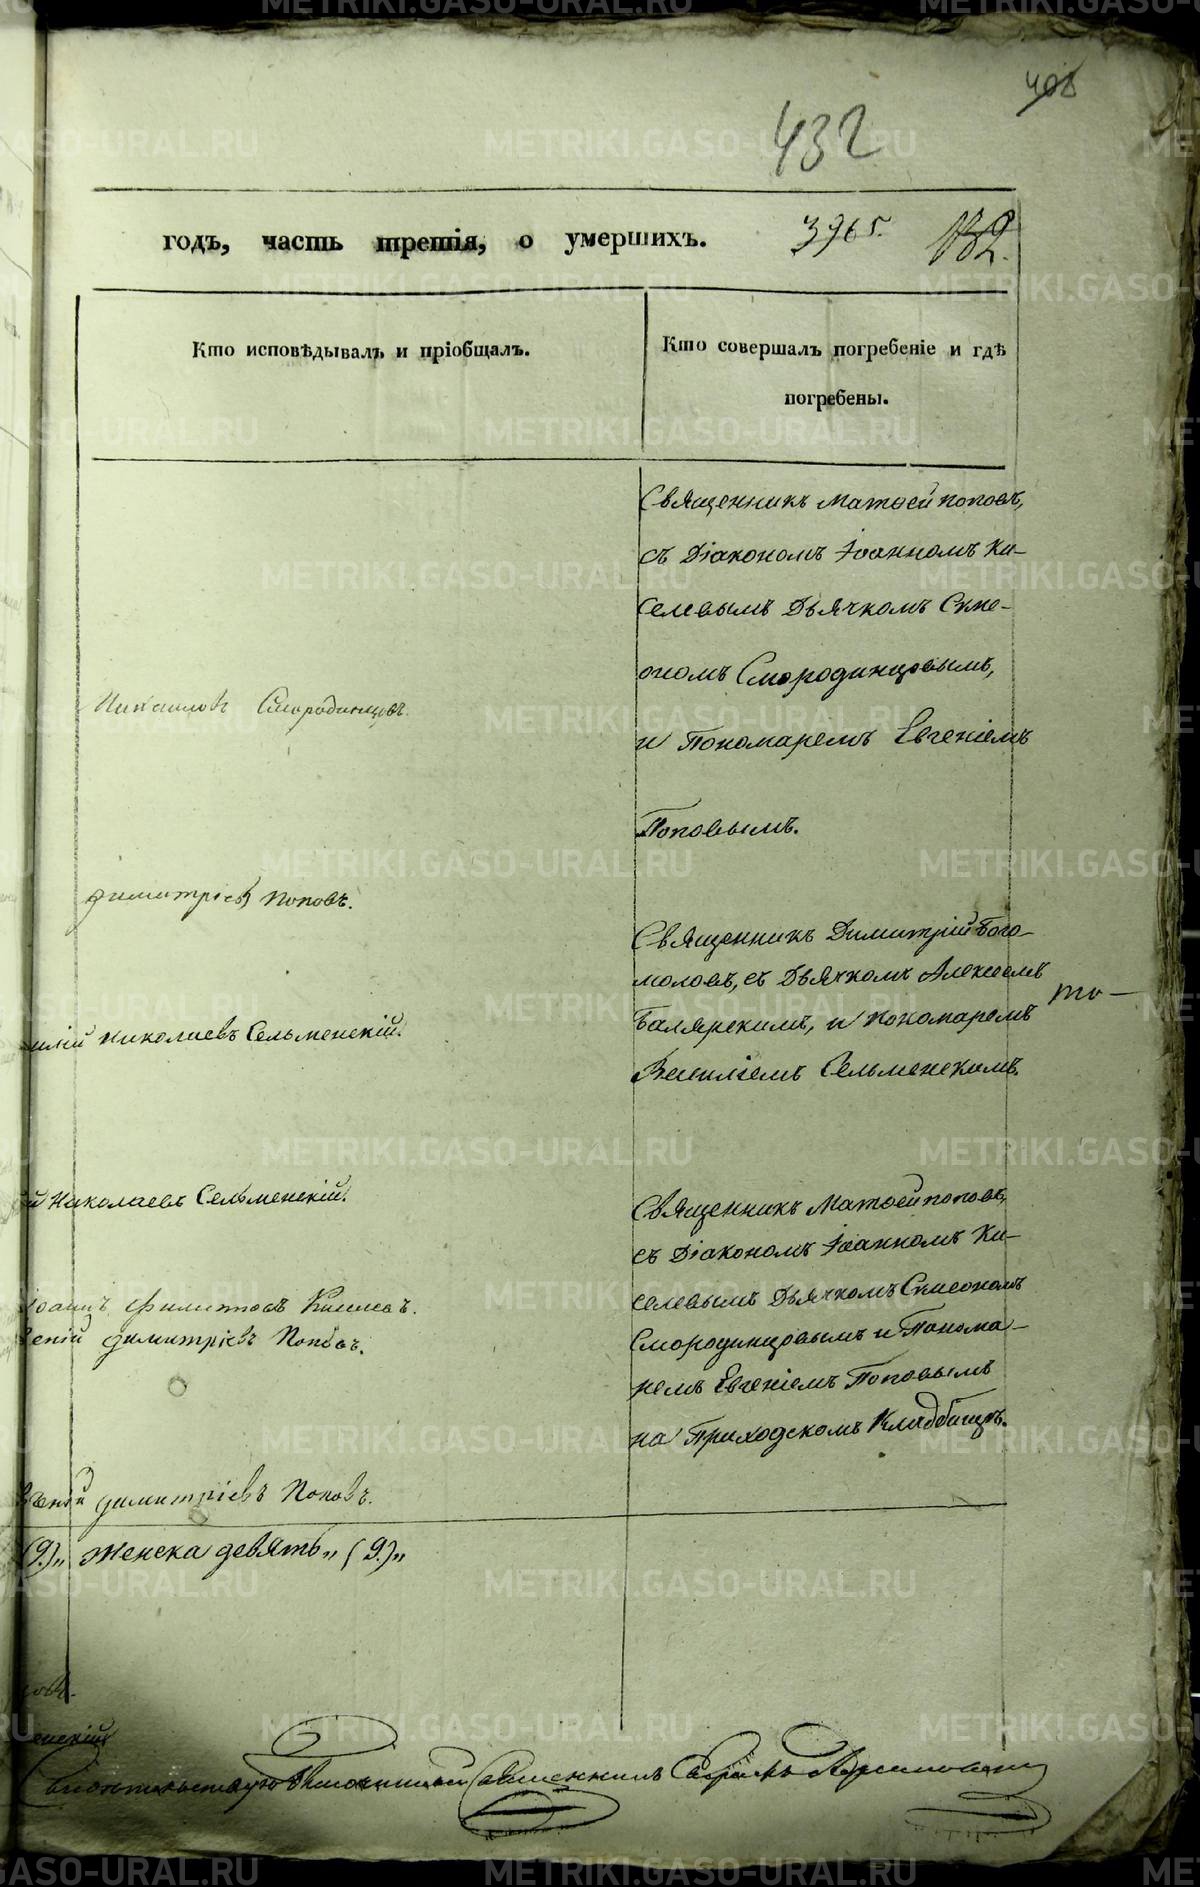 408
432
годъ, часть третія, о умершихъ.
396 г.
132.
Кто исповѣдывалъ и пріобщалъ.
Кто совершалъ погребеніе и гдѣ
погребены.
Священникъ Матѳей Поповъ,
съ Діакономъ Іоанномъ Ки-
селевымъ Дьячкомъ Симе-
ономъ Смородинцовымъ,
и Пономаремъ Евгеніемъ
Поповымъ.
Михаиловъ Смородинцовъ.
Димитріевъ Поповъ.
Священникъ Димитрій Бого-
моловъ, съ Дьячкомъ Алексѣемъ
то-
Балярскимъ, и Пономаремъ
Василіемъ Сельменскимъ.
илій Николаевъ Сельменскій.
й Николаевъ Сельменскій.
Священникъ Матѳей Поповъ,
съ Діакономъ Іоанномъ Ки-
селевымъ Дьячкомъ Симеономъ
Смородинцовымъ и Понома-
ремъ Евгеніемъ Поповымъ
на Приходскомъ Кладбищѣ.
Іоаннъ Филиповъ Киселевъ.
геній Димитріевъ Поповъ.
вгеній Димитріевъ Поповъ.
(9.)„ Женска девять„ (9.)„
овъ.
енскій
Священникъ
METRIKI.GASO-URAL.RU